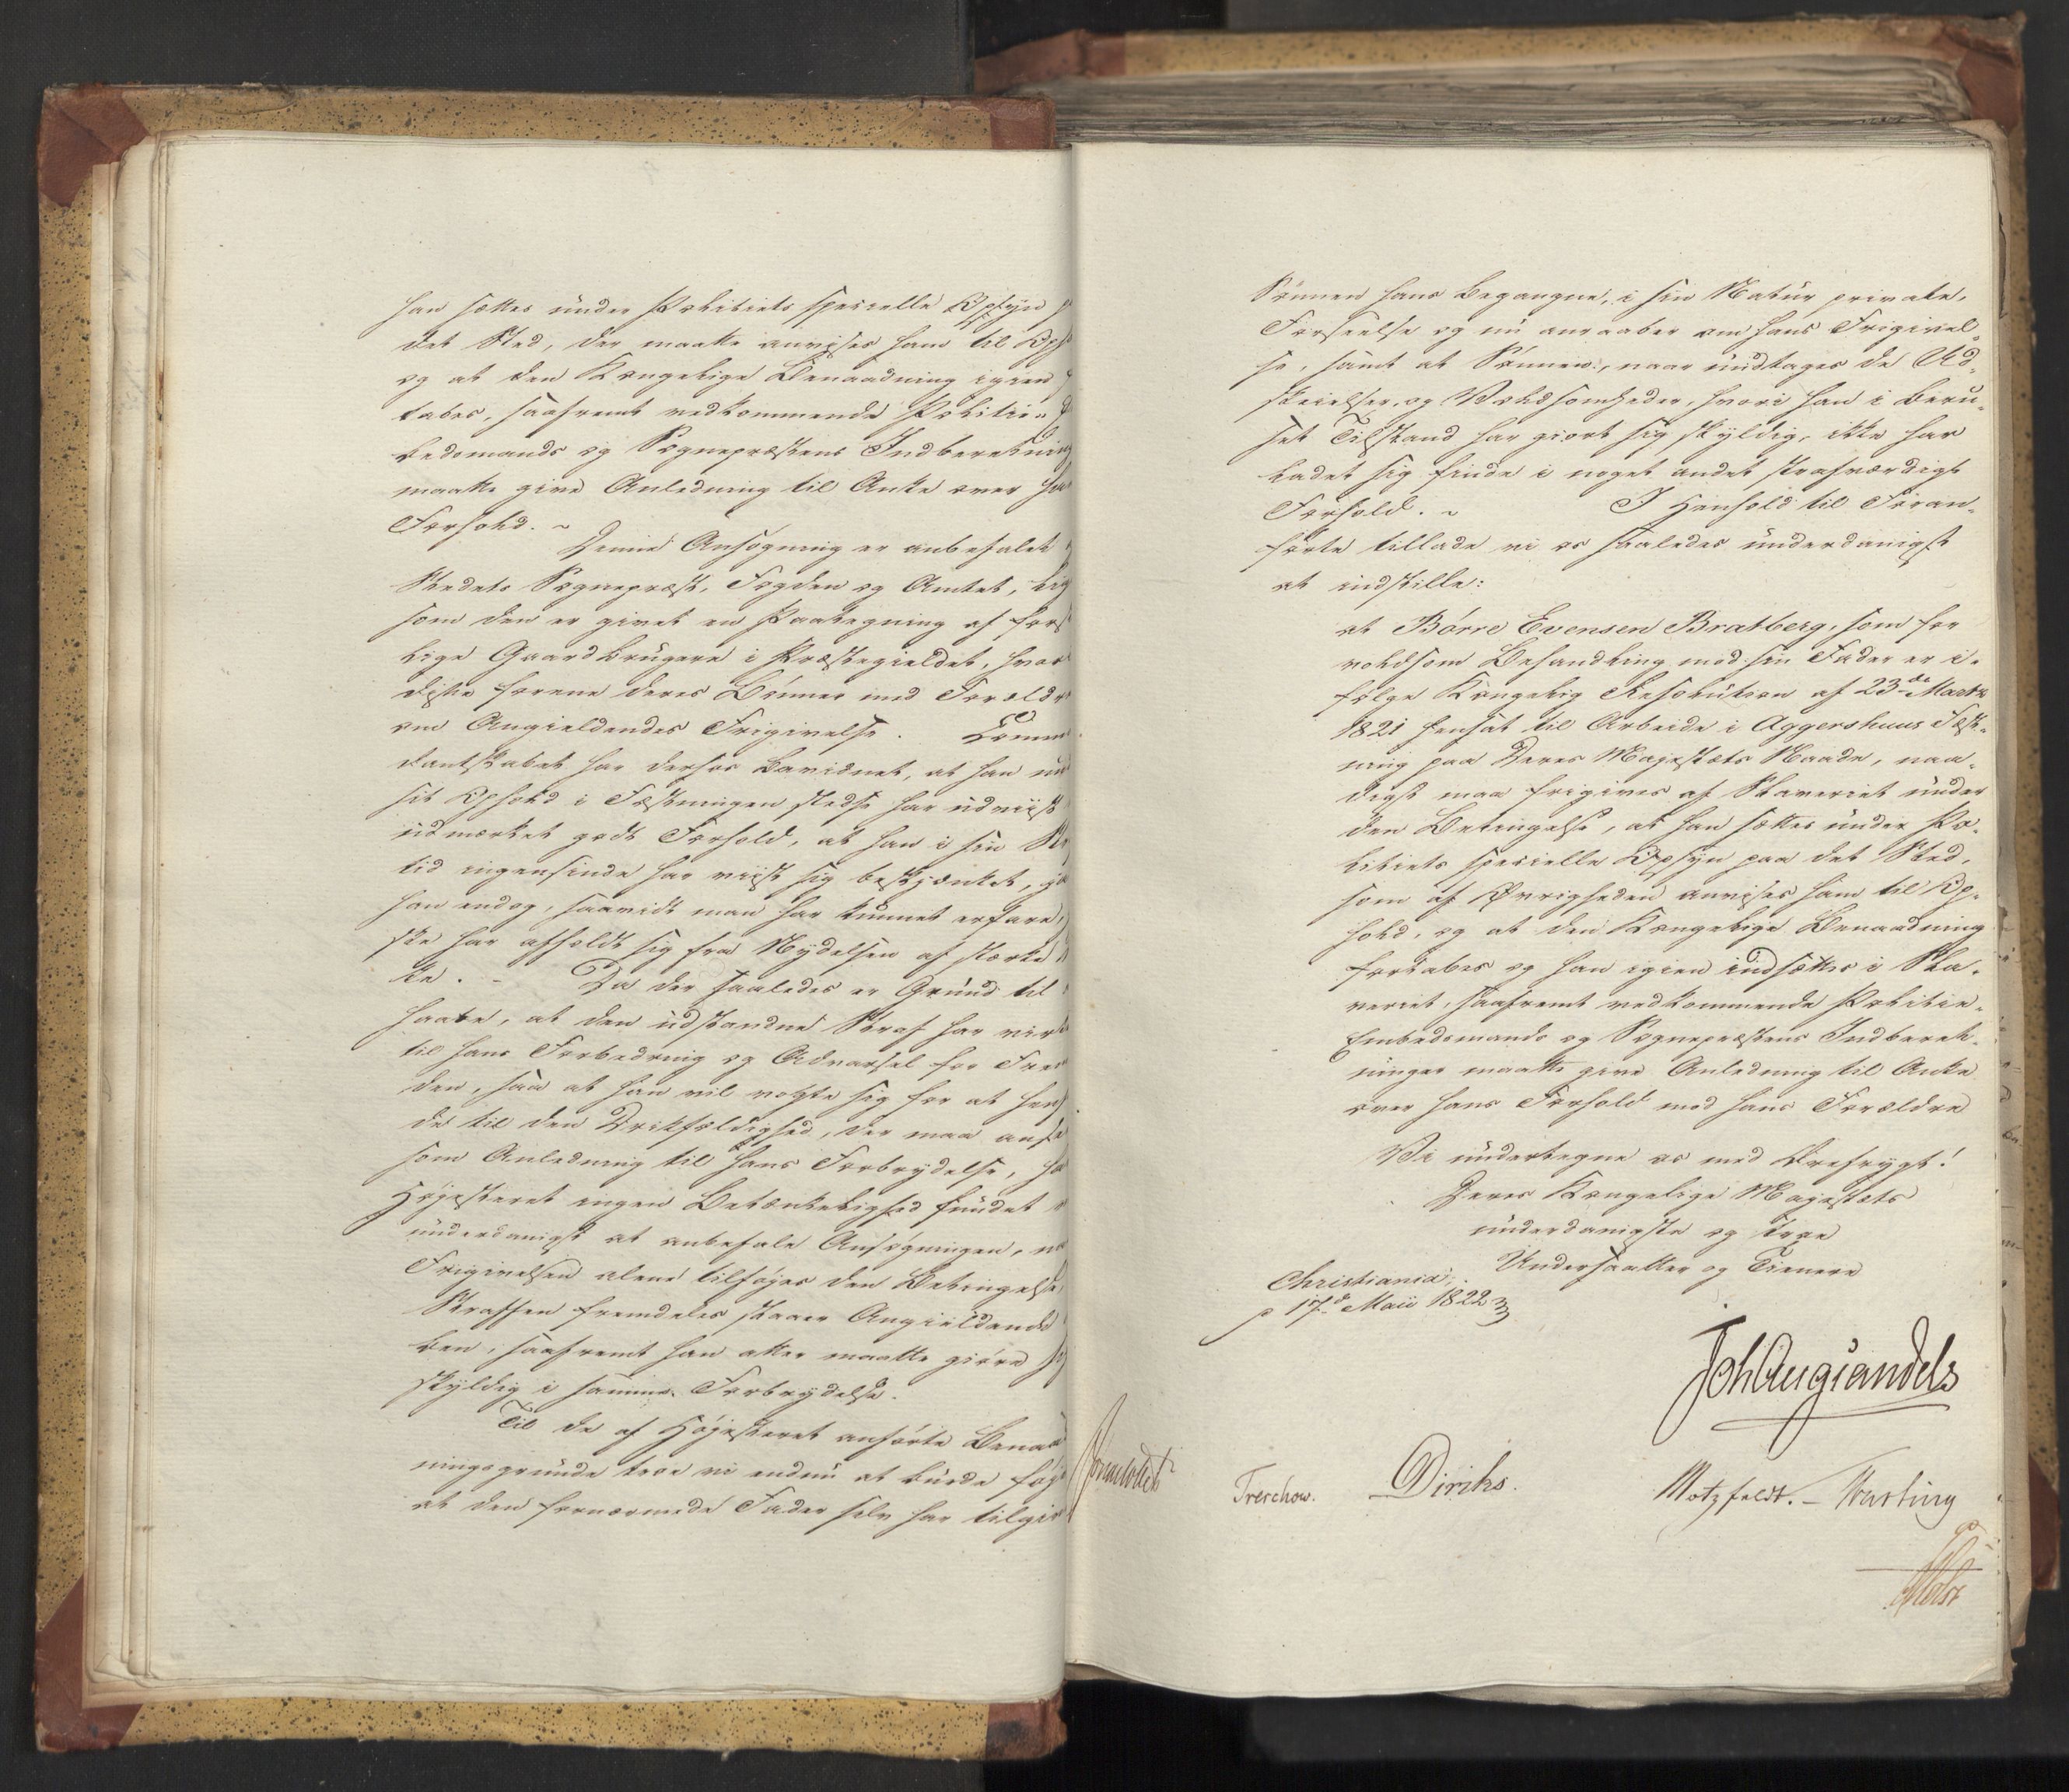 han sættes under Politiets specielle Opsyn p
det Sted, der maatte anvises ham til Oph
og at den Kongelige Benaadning igien
tabes, saafremt vedkommende Politie-
bedsmands og Sognepræstens Indberetning
maatte give Anledning til Anke over han
Forhold. ~
Denne Ansøgning er anbefalet
Stedets Sognepræst, Fogden og Amtet, lig
som den er givet en Paategning af for
lige Gaardbrugere i Præstegieldet, hvor
disse forene deres Bønner med Forældre
om Angieldendes Frigivelse. Comman
dantskabet har derhos bevidnet, at han un
sit Ophold i Fæstningen stedse har udviist
udmærket godt Forhold, at han i sin
tid ingensinde har viist sig beskjænket, ja
han endog, saavidt man har kunnet erfare,
ske har afholdt sig fra Nydelsen af stærke
ke. - Da der saaledes er Grund til
haabe, at den udstandne Straf har virk
til hans Forbedring og Advarsel for Frem
den, saa at han vil vogte sig for at hen
de til den Drikfældighed, der maa anse
som Anledning til hans Forbrydelse, ha
Høiesteret ingen Betænkelighed fundet
underdanigst at anbefale Ansøgningen, na
Frigivelsen alene tilføjes den Betingelse
Straffen fremdeles staaer Angieldende
ben, saafremt han atter maatte giøre sig
skyldig i samme Forbrydelse.
Til de af Høiesteret anførte Benaad
ningsgrunde troe vi endnu at burde føje
at den fornærmede Fader selv har tilgiv
Sønnen hans begangne, i sin Natur private,
Forseelse og nu anraaber om hans Frigivel-
se, samt at Sønnen, naar undtages de Ud-
skeielser og Voldsomheder, hvori han i beru-
set Tilstand har giort sig skyldig, ikke har
ladet sig finde i noget andet strafværdigt
Forhold. ~ I Henhold til Foran-
førte tillade vi os saaledes underdanigst
at indstille:
at Børre Evensen Bratberg, som for
voldsom Behandling mod sin Fader er i-
følge Kongelig Resolution af 23de Marts
1821 hensat til Arbeide i Aggershuus Fæst-
ning paa Deres Majestæts Naade, naa-
digst maa frigives af Slaveriet under
den Betingelse, at han sættes under Po-
litiets specielle Opsyn paa det Sted,
som af Øvrigheden anvises ham til Op-
hold, og at den Kongelige Benaadning
fortabes og han igien indsættes i Sla-
veriet, saafremt vedkommende Politie-
Embedsmands og Sognepræstens Indberet-
ninger maatte give Anledning til Anke
over hans Forhold mod hans Forældre
Vi undertegne os med Ærefrygt!
Deres Kongelige Majestæts
underdanigste og troe
Undersaatter og Tienere
Christiania,
p 17de Maii 1822
Joh Aug Sandels
Sommerhielm
Treschow. Diriks. Motzfeldt. - Krefting
Holst